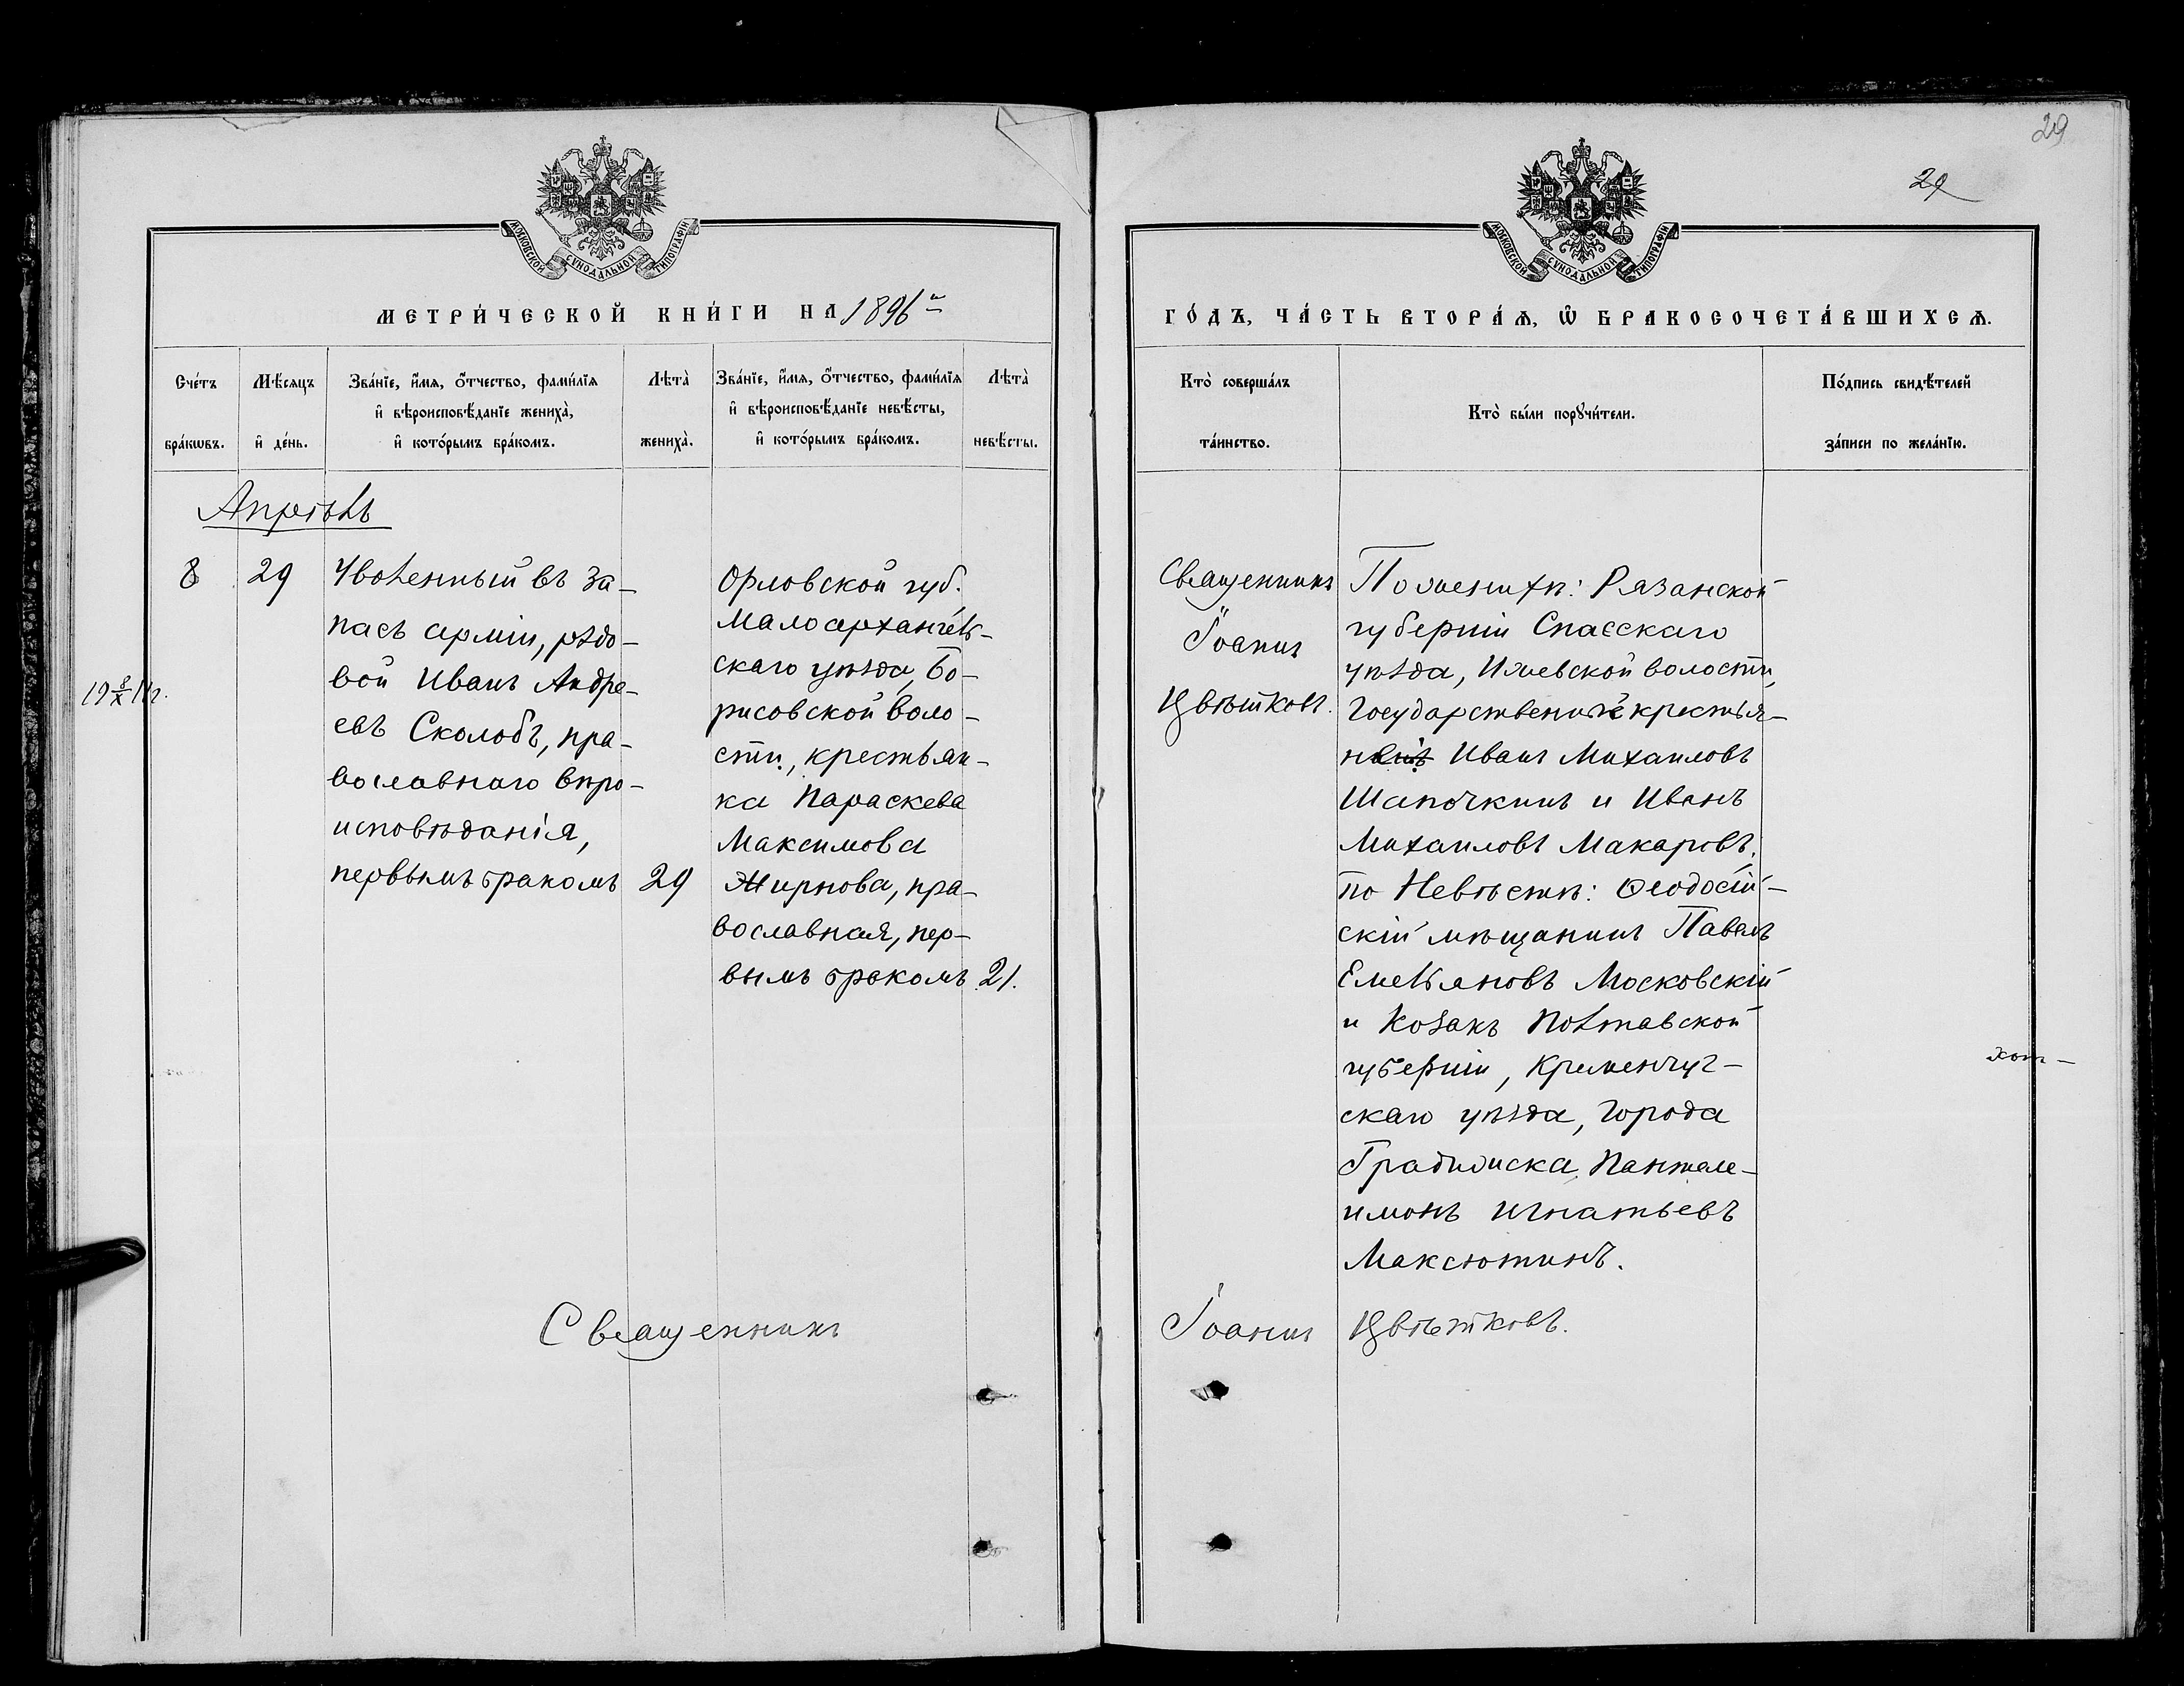 29
29
МОСКОВСКОЙ СѴНОДАЛЬНОЙ ТИПОГРАФІИ
МОСКОВСКОЙ СѴНОДАЛЬНОЙ ТИПОГРАФІИ
МЕТРИ́ЧЕСКОЙ КНИ́ГИ НА 1896й
ГО́ДЪ, ЧА́СТЬ ВТОРА́Ѧ, Ѿ БРАКОСОЧЕТА́ВШИХСѦ.
Сче́тъ бра́кѡвъ.
Мѣ́сяцъ и҆ де́нь.
Зва́нїе, и҆́мя, ѻ҆́тчество, фами́лїя
и҆ вѣроисповѣ́данїе жениха̀,
и҆ кото́рымъ бра́комъ.
Лѣта̀ жениха̀.
Зва́нїе, и҆́мя, ѻ҆́тчество, фами́лїя
и҆ вѣроисповѣ́данїе невѣ́сты,
и҆ кото́рымъ бра́комъ.
Лѣта̀ невѣ́сты.
Кто̀ соверша́лъ
та́инство.
Кто̀ бы́ли порꙋчи́тели.
По́дпись свидѣ́телей
за́писи по жела́нїю.
Апрѣль
8
29
19 8/X 11 г.
Уволенный въ за-
пасъ арміи, рядо-
вой Иванъ Андре-
евъ Сколобъ, пра-
вославнаго вѣро-
исповѣданія,
первымъ бракомъ
29
Орловской губ.
Малоархангель-
скаго уѣзда, Бо-
рисовской воло-
сти, крестьян-
ка Параскева
Максимова
Жирнова, пра-
вославная, пер-
вымъ бракомъ
21.
Священникъ
Іоаннъ
Цвѣтковъ.
По женихѣ: Рязанской
губерніи Спасскаго
уѣзда, Ижевской волости,
Государственные крестья-
не Иванъ Михаиловъ
Шапочкинъ и Иванъ
Михаиловъ Макаровъ;
по Невѣстѣ: Ѳеодосій-
скій мѣщанинъ Павелъ
Емельяновъ Московскій
и Козакъ Полтавской
губерніи, Кременчуг-
скаго уѣзда, города
Градижска Пантеле-
имонъ Игнатьевъ
Максютинъ.
Священникъ Іоаннъ Цвѣтковъ.